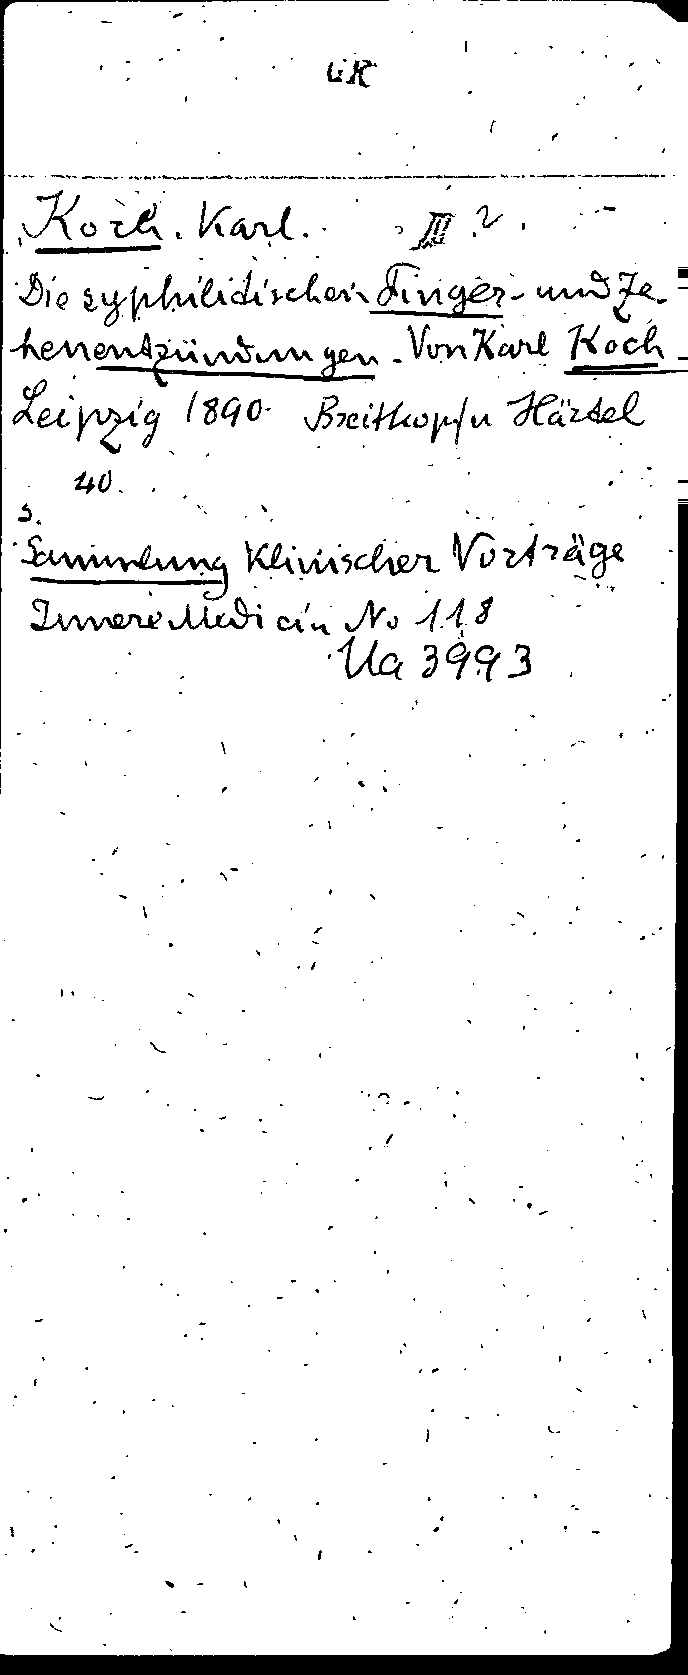 Koch. Karl. III 2.
Die syphilitischen Finger- und Ze-
henentzündungen. Von Karl Koch
Leipzig 1890. Breitkopf u Härtel
40.
s.
Sammlung Klinischer Vorträge
Innere Medicin No 118
Ua 3993